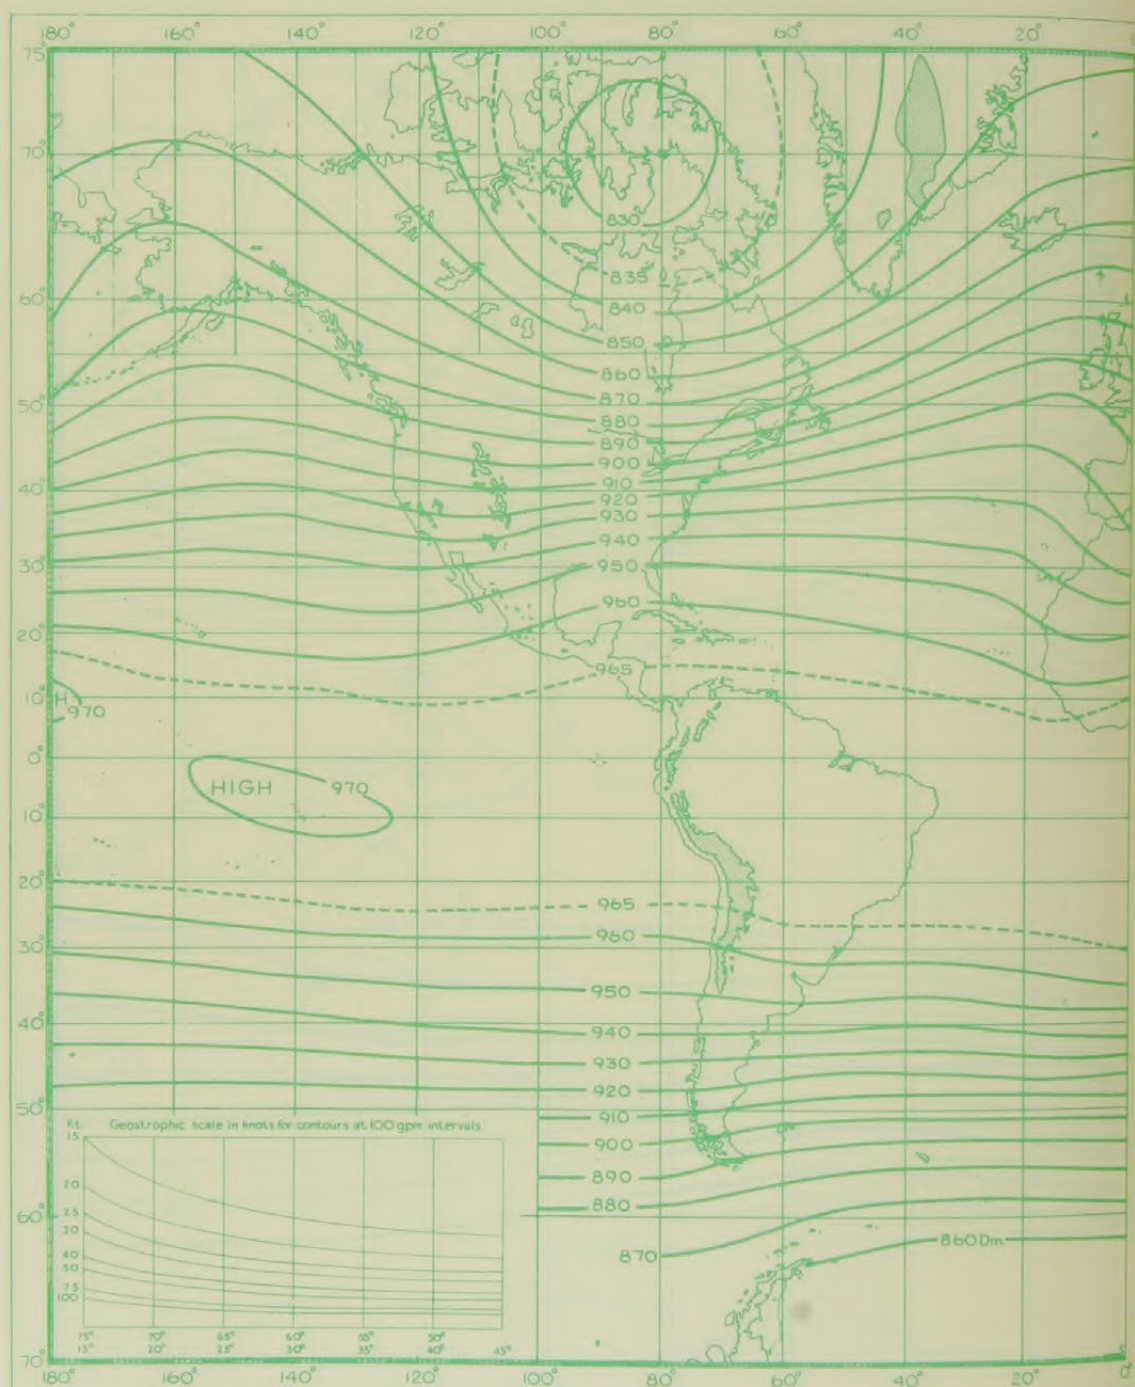 180° 160° 140° 120° 100° 80° 60° 40° 20°
75°
70°
60°
50°
40°
30°
20°
10°
0°
10°
20°
30°
40°
50°
60°
70°
830
835
840
850
860
870
880
890
900
910
920
930
940
950
960
965
H
970
HIGH 970
965
960
950
940
930
920
910
900
890
880
870
860Dm
Kt. Geostrophic scale in knots for contours at 100 gpm intervals
15
20
25
30
40
50
75
100
75° 70° 65° 60° 55° 50° 45°
15° 20° 25° 30° 35° 40°
180° 160° 140° 120° 100° 80° 60° 40° 20° 0°